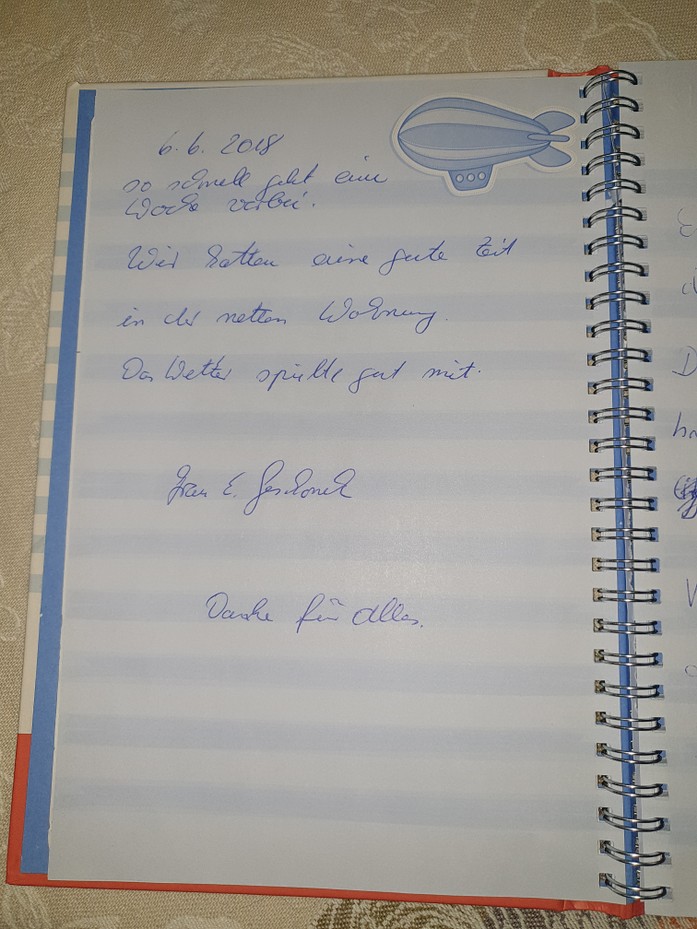 6.6. 2018
so schnell geht eine
Woche vorbei.
Wir hatten eine gute Zeit
in der netten Wohnung.
Das Wetter spielte gut mit.
Frau E.
Danke für alles.